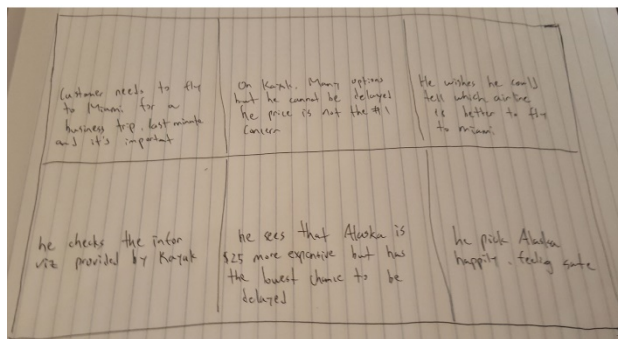 Customer needs to fly
to Miami for a
business trip. last minute
and it's important
On Kayak. Many options
but he cannot be delayed
he price is not the #1
concern
He wishes he could
tell which airline
is better to fly
to miami
he checks the infor
viz provided by Kayak
he sees that Alaska is
$25 more expensive but has
the lowest chance to be
delayed
he pick Alaska
happily. feeling safe